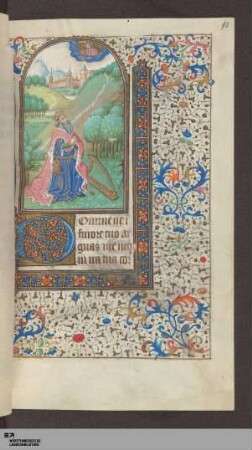 Domine ne i
furore tuo ar
guas me neq
in ira tua cor
WÜRTTEMBERGISCHE
LANDESBIBLIOTHEK